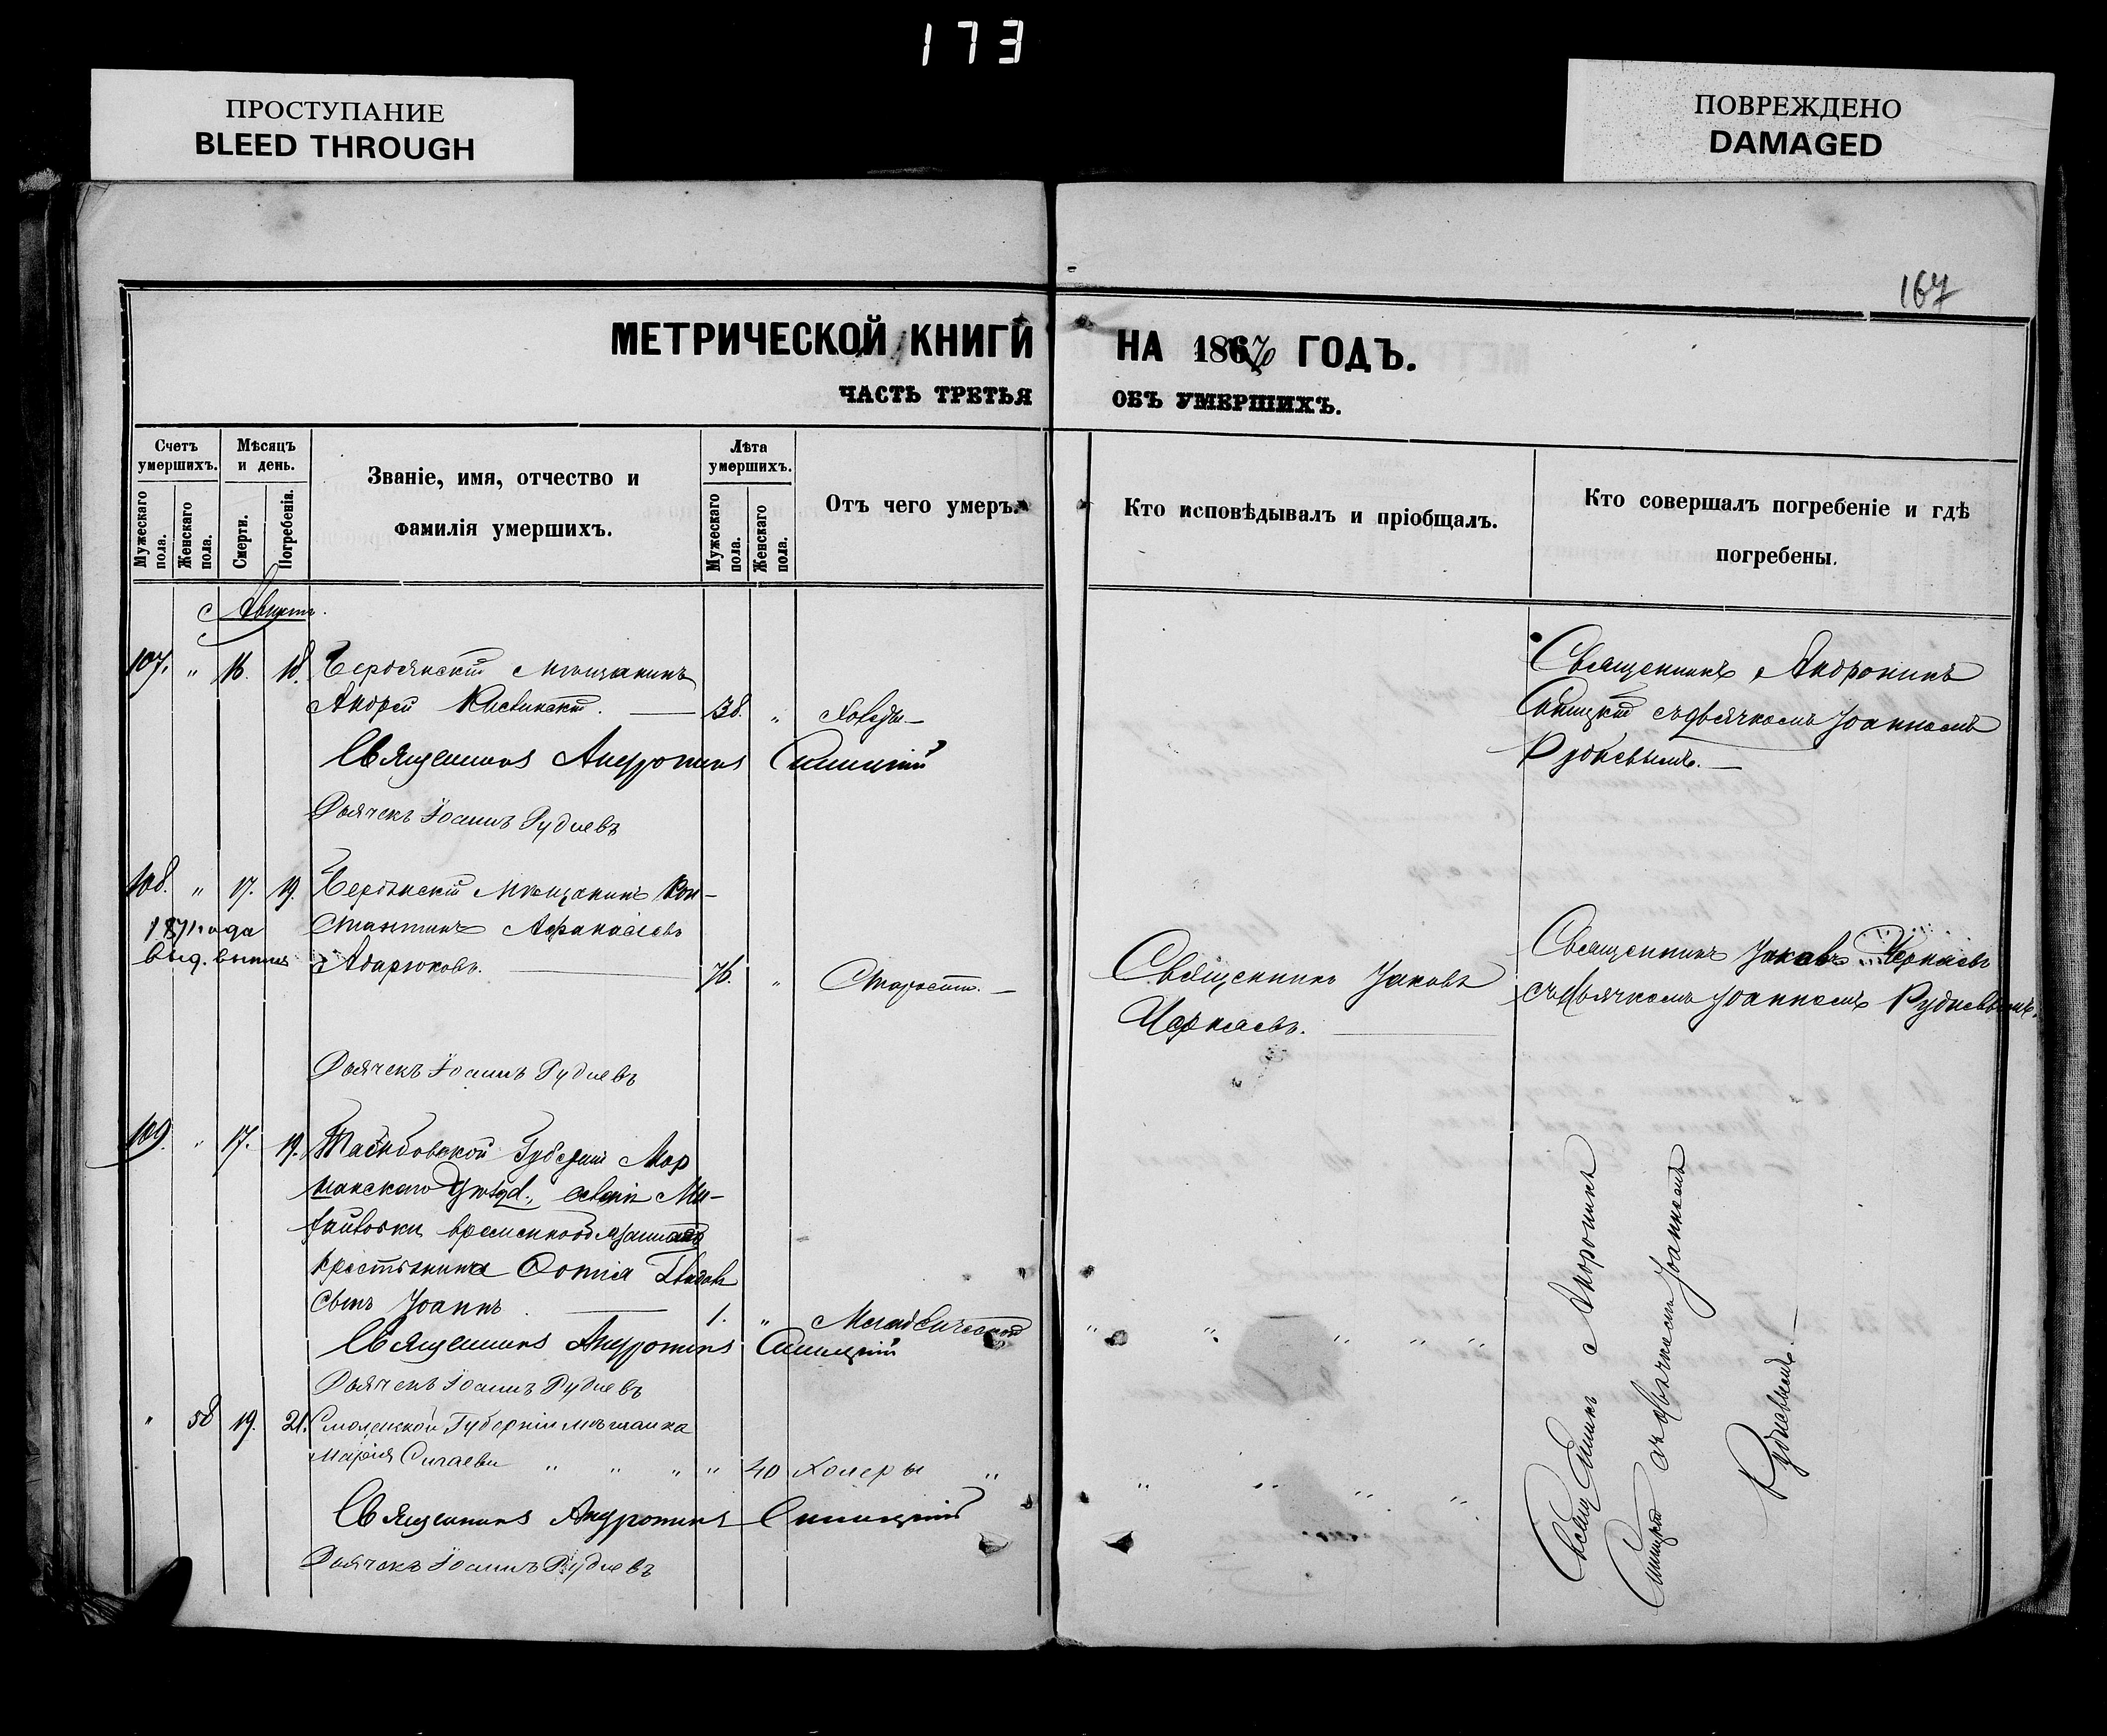 173
ПРОСТУПАНИЕ
BLEED THROUGH
ПОВРЕЖДЕНО
DAMAGED
167
МЕТРИЧЕСКОЙ КНИГИ НА 1870 ГОДЪ.
ЧАСТЬ ТРЕТЬЯ ОБЪ УМЕРШИХЪ.
Счетъ умершихъ.
Мужескаго пола.
Женскаго пола.
Мѣсяцъ и день.
Смерти.
Погребенія.
Званіе, имя, отчество и
фамилія умершихъ.
Лѣта умершихъ.
Мужескаго пола.
Женскаго пола.
Отъ чего умеръ.
Кто исповѣдывалъ и пріобщалъ.
Кто совершалъ погребеніе и гдѣ
погребены.
Августъ.
107. " 16. 18. Бердянскій мѣщанинъ
Андрей 38. " Холеры
Священникъ Андроникъ Синицкій
Дьячекъ Іоаннъ Рудневъ
Священникъ Андроникъ
Синицкій съ дьячкомъ Іоанномъ
Рудневымъ.
108. " 17. 19. мѣщанинъ Кон-
1871 года стантинъ Афанасіевъ
Абарюковъ. 76. " Старости.
Дьячекъ Іоаннъ Рудневъ
Священникъ Іаковъ
Черняевъ.
Священникъ Іаковъ Черняевъ
съ дьячкомъ Іоанномъ Рудневымъ.
109. " 17. 19. Тамбовской Губерніи Мор
шанскаго Уѣзд., Ми-
хайловки временнообязаннаго
крестьянина
сынъ Іоаннъ 1. "
Священникъ Андроникъ Синицкій
Дьячекъ Іоаннъ Рудневъ
" 58 19. 21. Смоленской Губерніи мѣщанка
Марія " " " " 40 Холеры "
Священникъ Андроникъ Синицкій
Дьячекъ Іоаннъ Рудневъ
Священникъ Андроникъ
Синицкій съ дьячкомъ Іоанномъ
Рудневымъ.